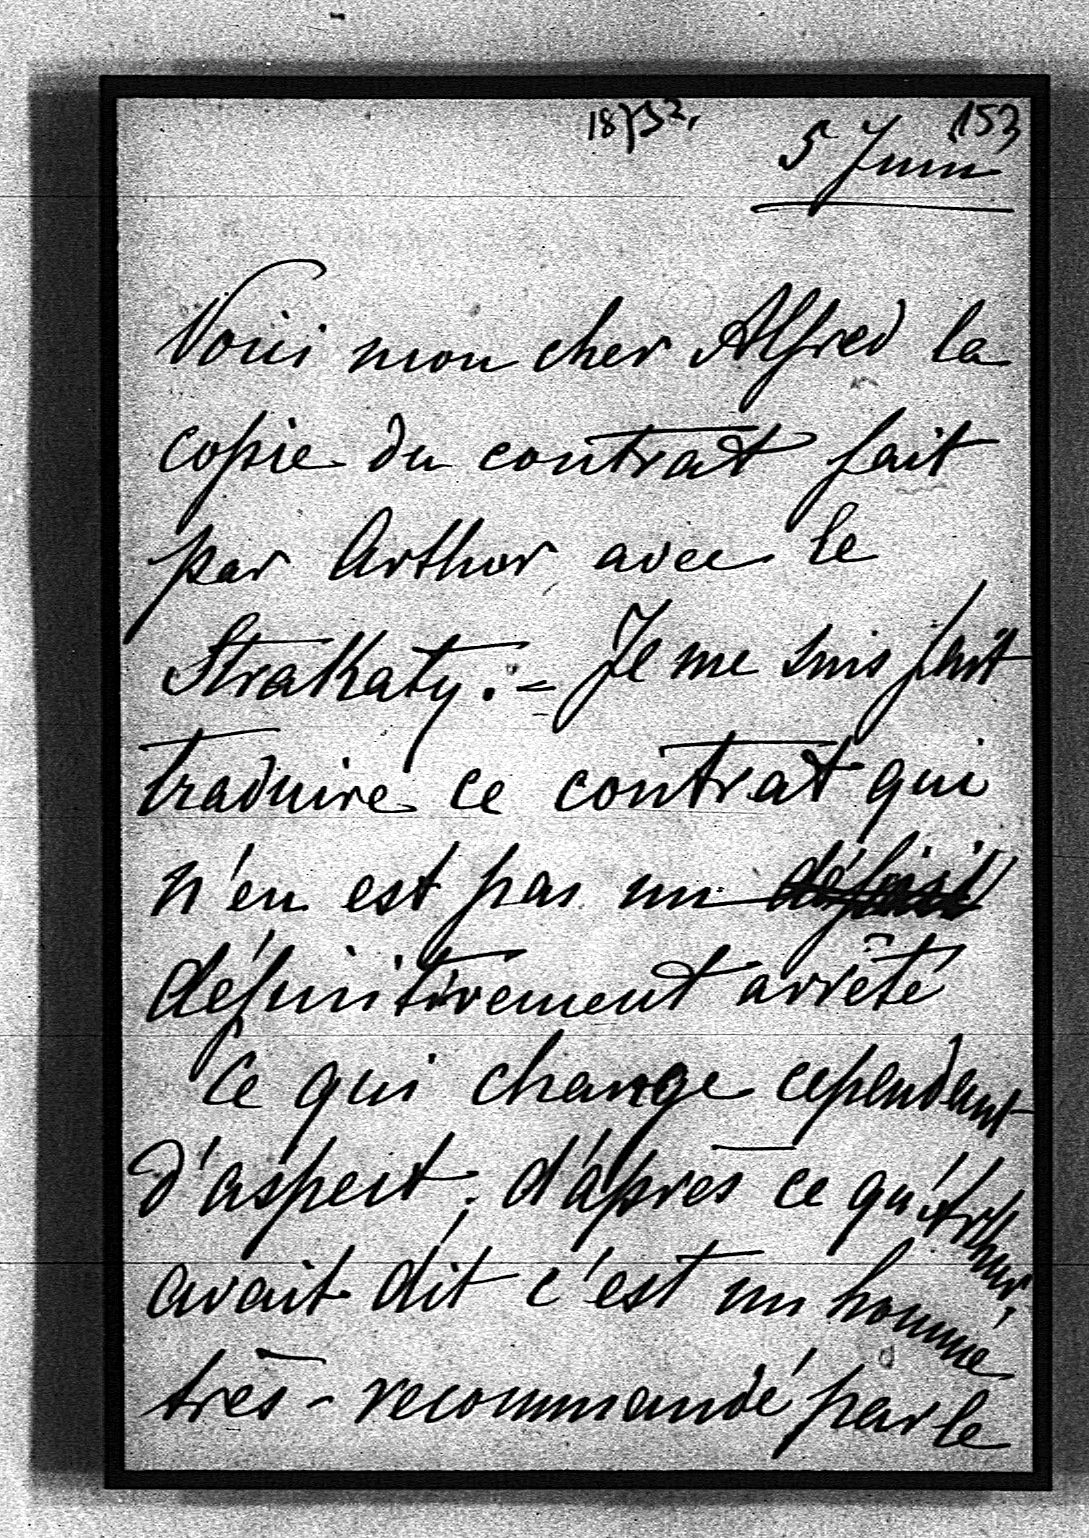 153
5 Juin
Voici mon cher Alfred la
copie du contrat fait
par Arthur avec le
Strakaty. – Je me suis fait
traduire ce contrat qui
n'en est pas un définit
définitivement arrêté
Ce qui change cependant
d'aspect; d'après ce qu'Arthur,
avait dit c'est un homme
très-recommandé par le